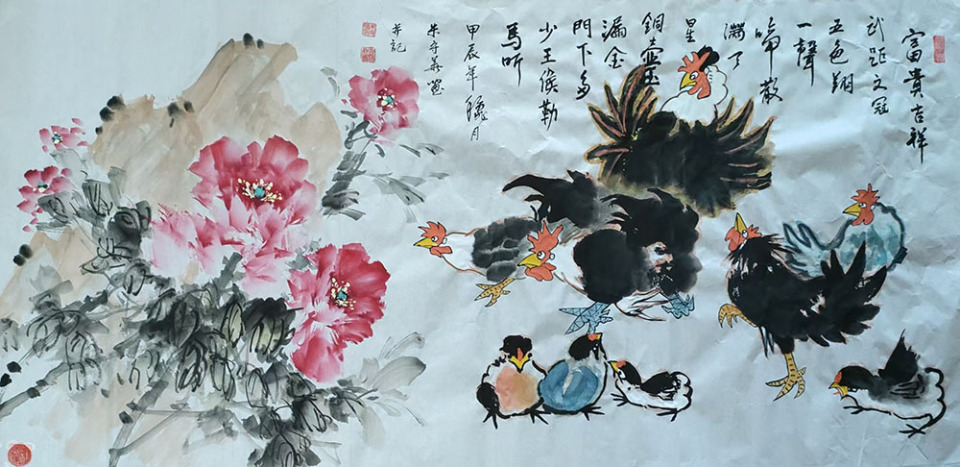 富貴吉祥
武距文冠
五色翎
一聲
啼散
滿
星
銅壺玉
漏金
門下多
少王侯勒
馬听
甲辰年龝月
朱守
并記